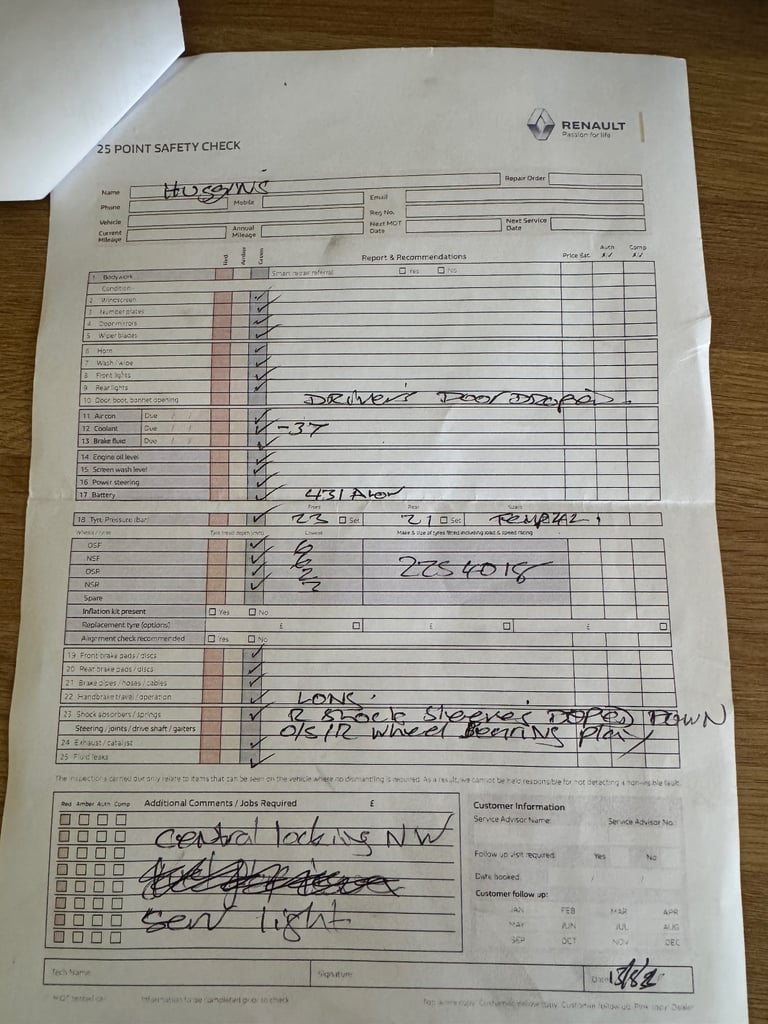 RENAULT
Passion for life
25 POINT SAFETY CHECK
Name HUGGINS Repair Order
Phone Mobile Email
Vehicle Reg No.
Current Mileage Annual Mileage Next MOT Date Next Service Date
Red Amber Green Report & Recommendations Price Est. Auth Comp
1 Bodywork Smart repair referral Yes No
Condition
2 Windscreen
3 Number plates
4 Door mirrors
5 Wiper blades
6 Horn
7 Wash / wipe
8 Front lights
9 Rear lights
10 Door, boot, bonnet opening DRIVER'S DOOR DROPED
11 Air con Due / /
12 Coolant Due / / -37
13 Brake fluid Due / /
14 Engine oil level
15 Screen wash level
16 Power steering
17 Battery 431
Front Rear Spare
18 Tyre Pressure (bar) 23 Set 21 Set
Wheels / tyres Tyre tread depth (mm) Lowest Make & size of tyres fitted including load & speed rating
OSF 6
NSF 6
OSR 2 2254018
NSR 2
Spare
Inflation kit present Yes No
Replacement tyre (options) £ £ £
Alignment check recommended Yes No
19 Front brake pads / discs
20 Rear brake pads / discs
21 Brake pipes / hoses / cables
22 Handbrake travel / operation LONG
23 Shock absorbers / springs R SHOCK SLEEVES DOPED DOWN
Steering / joints / drive shaft / gaiters O/S/R WHEEL BEARING PLAY
24 Exhaust / catalyst
25 Fluid leaks
The inspections carried out only relate to items that can be seen on the vehicle where no dismantling is required. As a result, we cannot be held responsible for not detecting a non-visible fault.
Red Amber Auth Comp Additional Comments / Jobs Required £
central locking NW
serv light
Customer Information
Service Advisor Name: Service Advisor No:
Follow up visit required: Yes No
Date booked: / /
Customer follow up:
JAN FEB MAR APR
MAY JUN JUL AUG
SEP OCT NOV DEC
Tech Name Signature Date
Information to be completed prior to check
Top white copy: Customer, Yellow copy: Customer follow up, Pink copy: Dealer